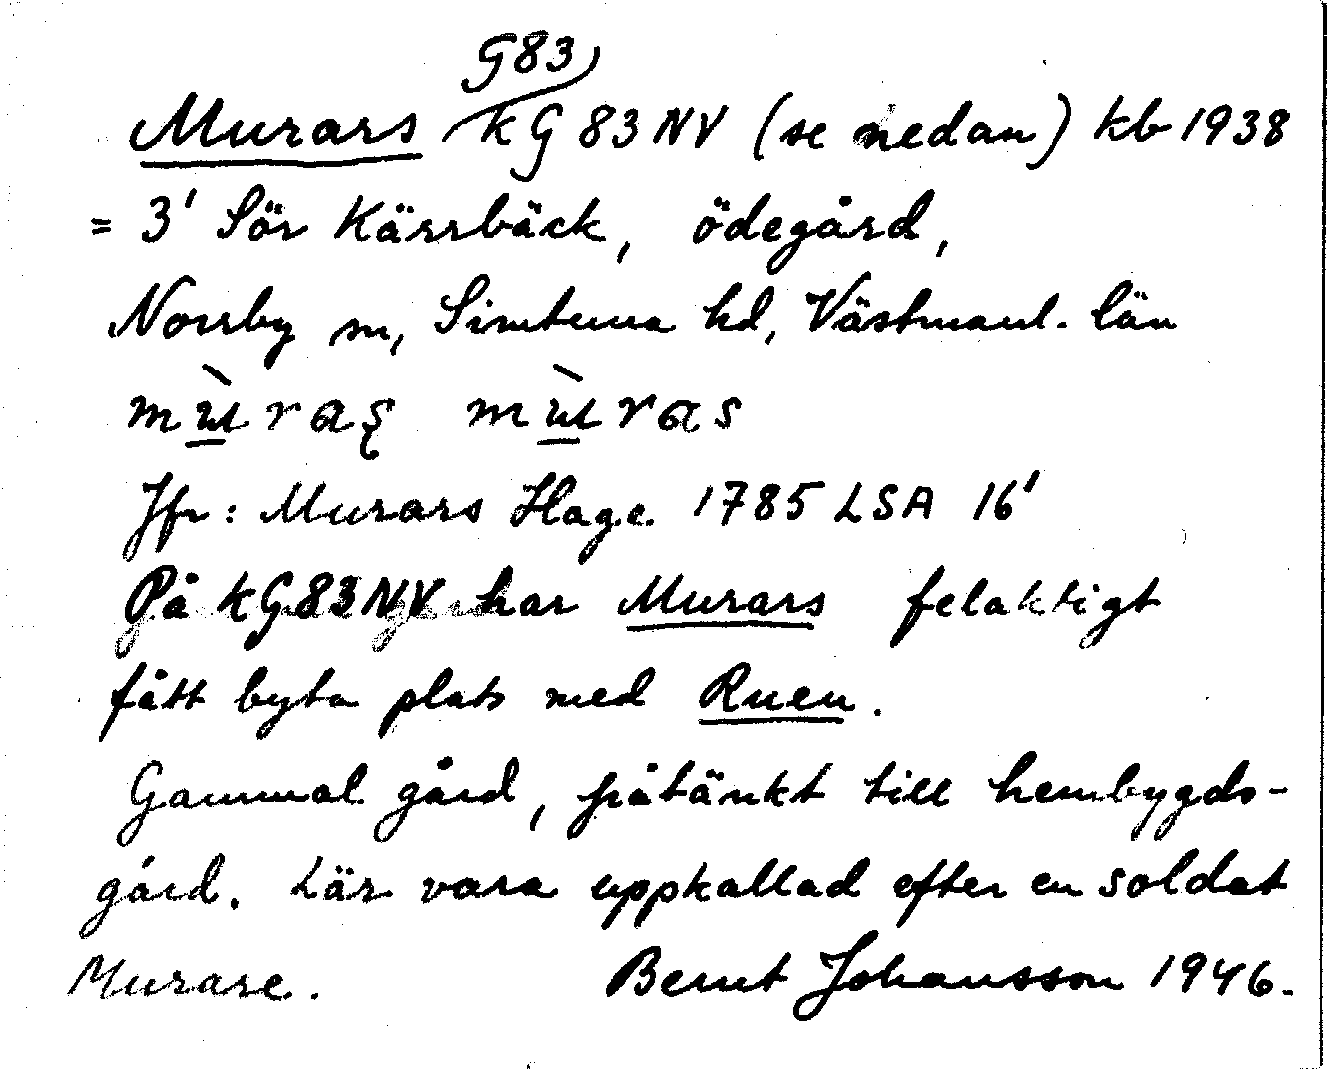 G83
Murars kG 83 NV (se nedan) kb 1938
= 3' Sör Kärrbäck, ödegård,
Norrby sn, Simtuna hd, Västmanl. län
mùraş mùras
Jfr: Murars Hage 1785 LSA 16'
På kG83NV har Murars felaktigt
fått byta plats med Ruen.
Gammal gård, påtänkt till hembygds-
gård. Lär vara uppkallad efter en soldat
Murare. Bernt Johansson 1946.